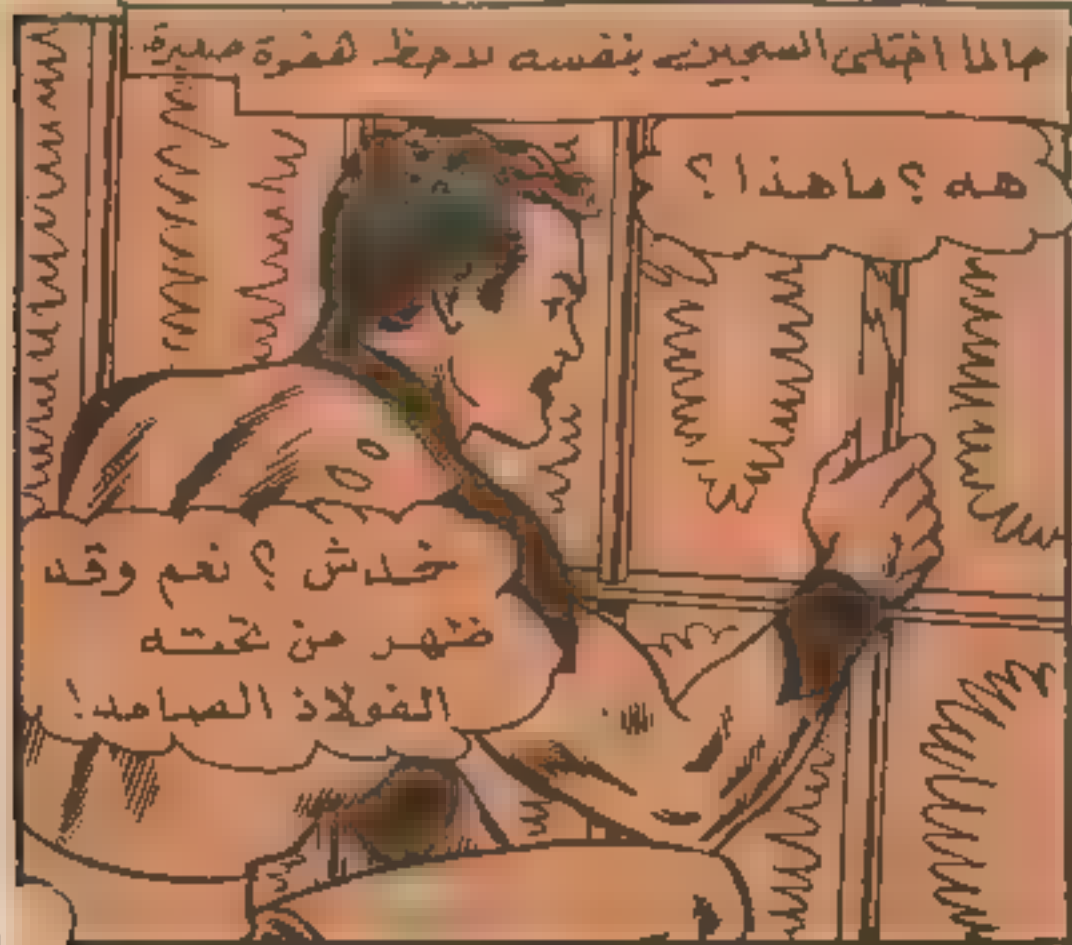 حالما اختلى السجين بنفسه لاحظ هفوة صغيرة
هه ؟ ماهذا ؟
خدش ؟ نعم وقد
ظهر من تحته
الفولاذ الصامد!